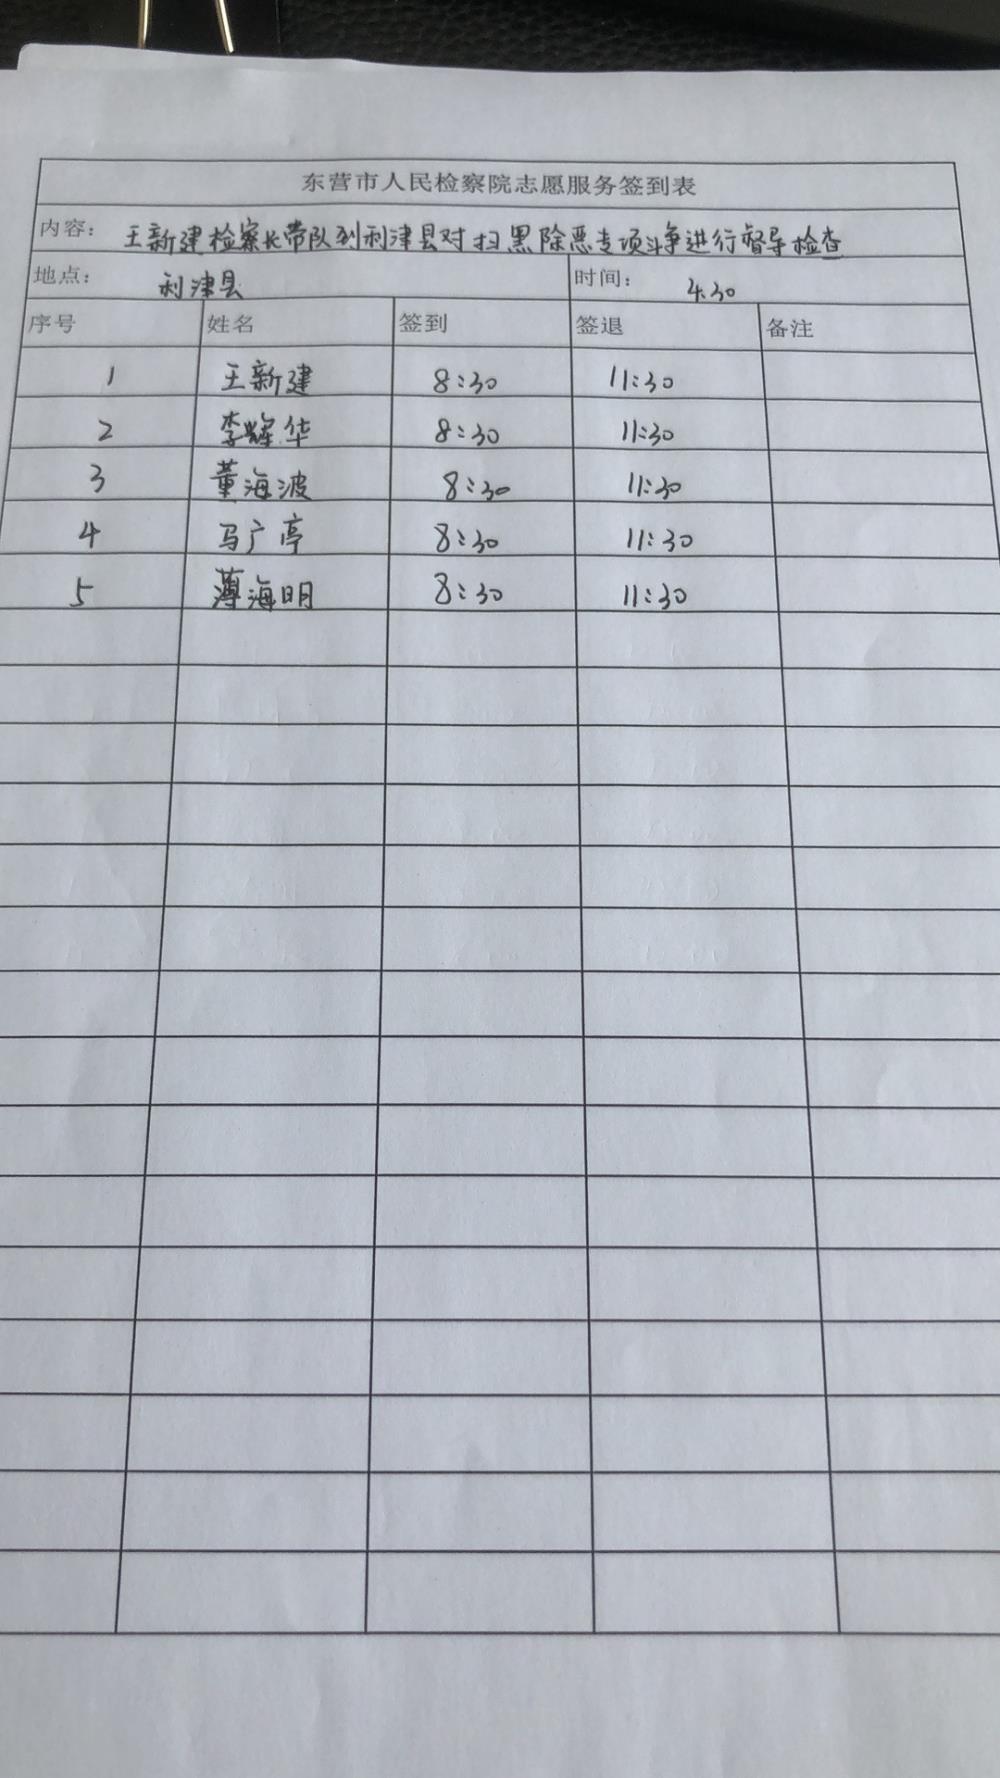 东营市人民检察院志愿服务签到表
内容: 王新建检察长带队到利津县对扫黑除恶专项斗争进行督导检查
地点: 利津县 时间: 4.30
序号 姓名 签到 签退 备注
1 王新建 8:30 11:30
2 李辉华 8:30 11:30
3 董海波 8:30 11:30
4 马广亭 8:30 11:30
5 薄海明 8:30 11:30